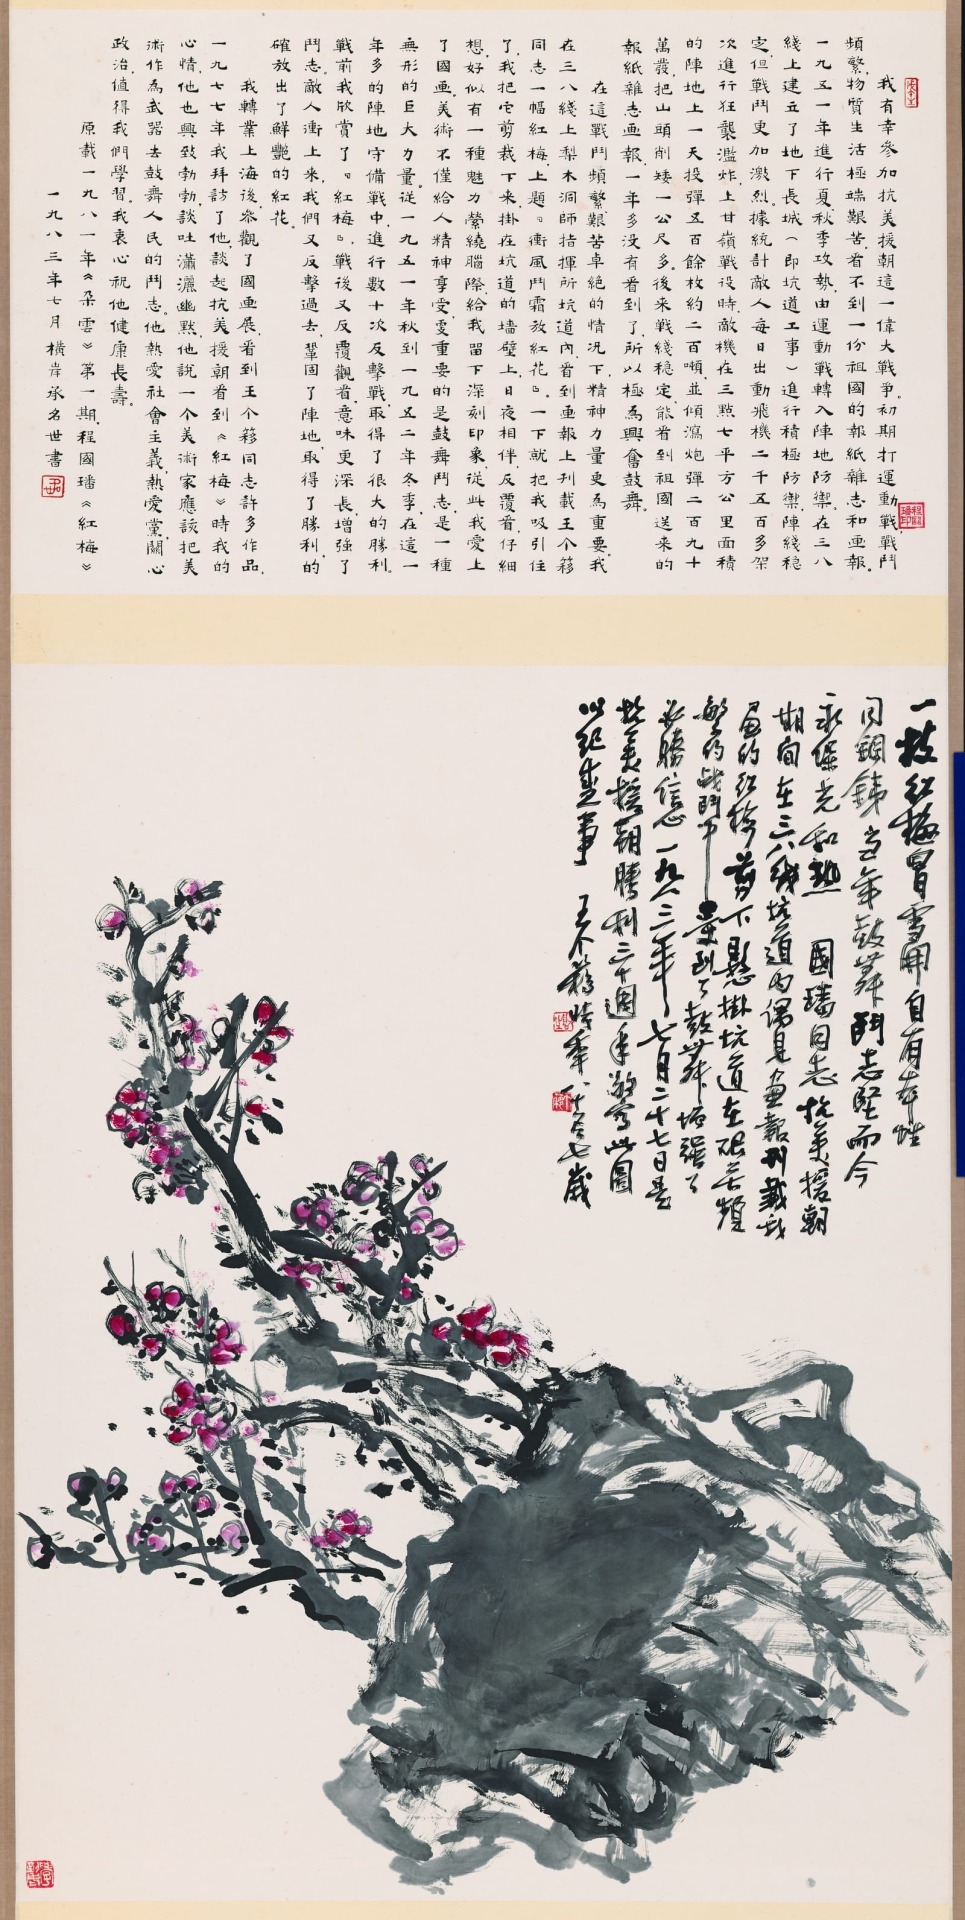 我有幸參加抗美援朝這一偉大戰爭。初期打運動戰,戰鬥
頻繁,物質生活極端艱苦,看不到一份祖國的報紙雜志和画報。
一九五一年進行夏秋季攻勢,由運動戰轉入陣地防禦。在三八
綫上建立了地下長城(即坑道工事)進行積極防禦,陣綫穩
定,但戰鬥更加激烈。據統計敵人每日出動飛機二千五百多架
次進行狂襲濫炸,上甘嶺戰役時,敵機在三點七平方公里面積
的陣地上一天投彈五百餘枚,約二百噸,並傾瀉炮彈二百九十
萬發,把山頭削矮一公尺多。後来戰綫穩定,能看到祖國送来的
報紙雜志画報,一年多没有看到了,所以極為興奮鼓舞。
在這戰鬥頻繁艱苦卓絕的情况下,精神力量更為重要。我
在三八綫上梨木洞師指揮所坑道內,看到画報上刊載王个簃
同志一幅紅梅,上題『衝風鬥霜放紅花』。一下就把我吸引住
了,我把它剪裁下来掛在坑道的墻壁上,日夜相伴,反覆看,仔細
想,好似有一種魅力縈繞腦際,給我留下深刻印象,從此我愛上
了國画。美術不僅給人精神享受,更重要的是鼓舞鬥志,是一種
無形的巨大力量。從一九五一年秋到一九五二年冬季,在這一
年多的陣地守備戰中,進行數十次反擊戰,取得了很大的勝利。
戰前我欣賞了『紅梅』,戰後又反覆觀看,意味更深長,增强了
鬥志。敵人衝上来,我們又反擊過去,鞏固了陣地,取得了勝利,的
確放出了鮮艷的紅花。
我轉業上海後,參觀了國画展,看到王个簃同志許多作品,
一九七七年我拜訪了他,談起抗美援朝看到《紅梅》時我的
心情,他也興致勃勃,談吐瀟灑幽默,他說一个美術家應該把美
術作為武器去鼓舞人民的鬥志。他熱愛社會主義,熱愛黨,關心
政治,值得我們學習。我衷心祝他健康長壽。
原載一九八一年《朵雲》第一期,程國璠《紅梅》
一九八三年七月橫岸承名世書
一枝紅梅冒雪開自有本性
同鋼鐵當年鼓舞鬥志堅而今
永葆光和熱 國璠同志抗美援朝
期間在三八綫坑道内偶見画報刊載我
画的紅梅剪下懸掛坑道在艰苦頻
繁的战鬥中受到了鼓舞增强了
必勝信心一九八三年七月二十七日是
抗美援朝勝利三十週年敬寫此圖
以紀盛事 王个簃時年八十又七歲